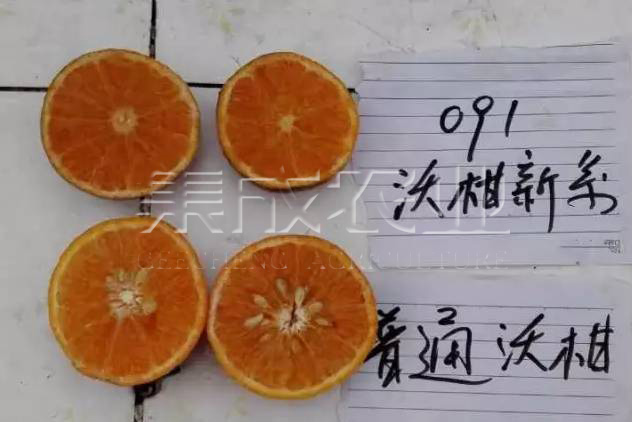 091
沃柑新系
集成农业
GEESHENG AGRICULTURE
普通沃柑